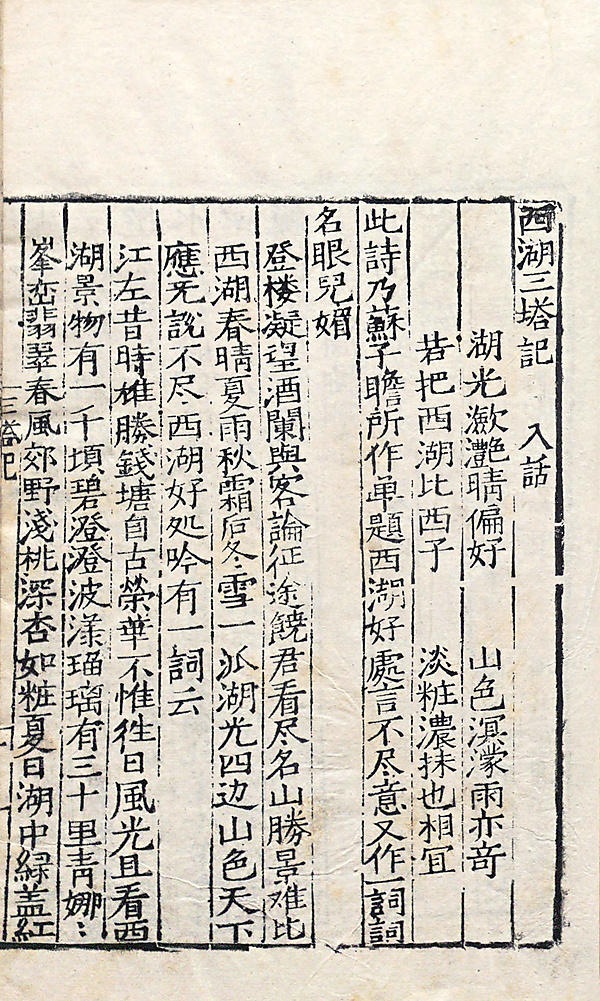 西湖三塔記　入話
湖光瀲灔晴偏好　山色溟濛雨亦竒
若把西湖比西子　淡粧濃抹也相宜
此詩乃蘇子瞻所作单題西湖好處言不尽意又作一詞詞
名眼兒媚
登楼凝望酒闌與客論征途饒君看尽名山勝景难比
西湖春晴夏雨秋霜后冬雪一派湖光四边山色天下
應无說不尽西湖好処吟有一詞云
江左昔時雄勝錢塘自古榮華不惟徃日風光且看西
湖景物有一千頃碧澄澄波漾瑠璃有三十里靑娜〻
峯巒翡翠春風郊野淺桃深杏如粧夏日湖中緑盖紅
三塔記